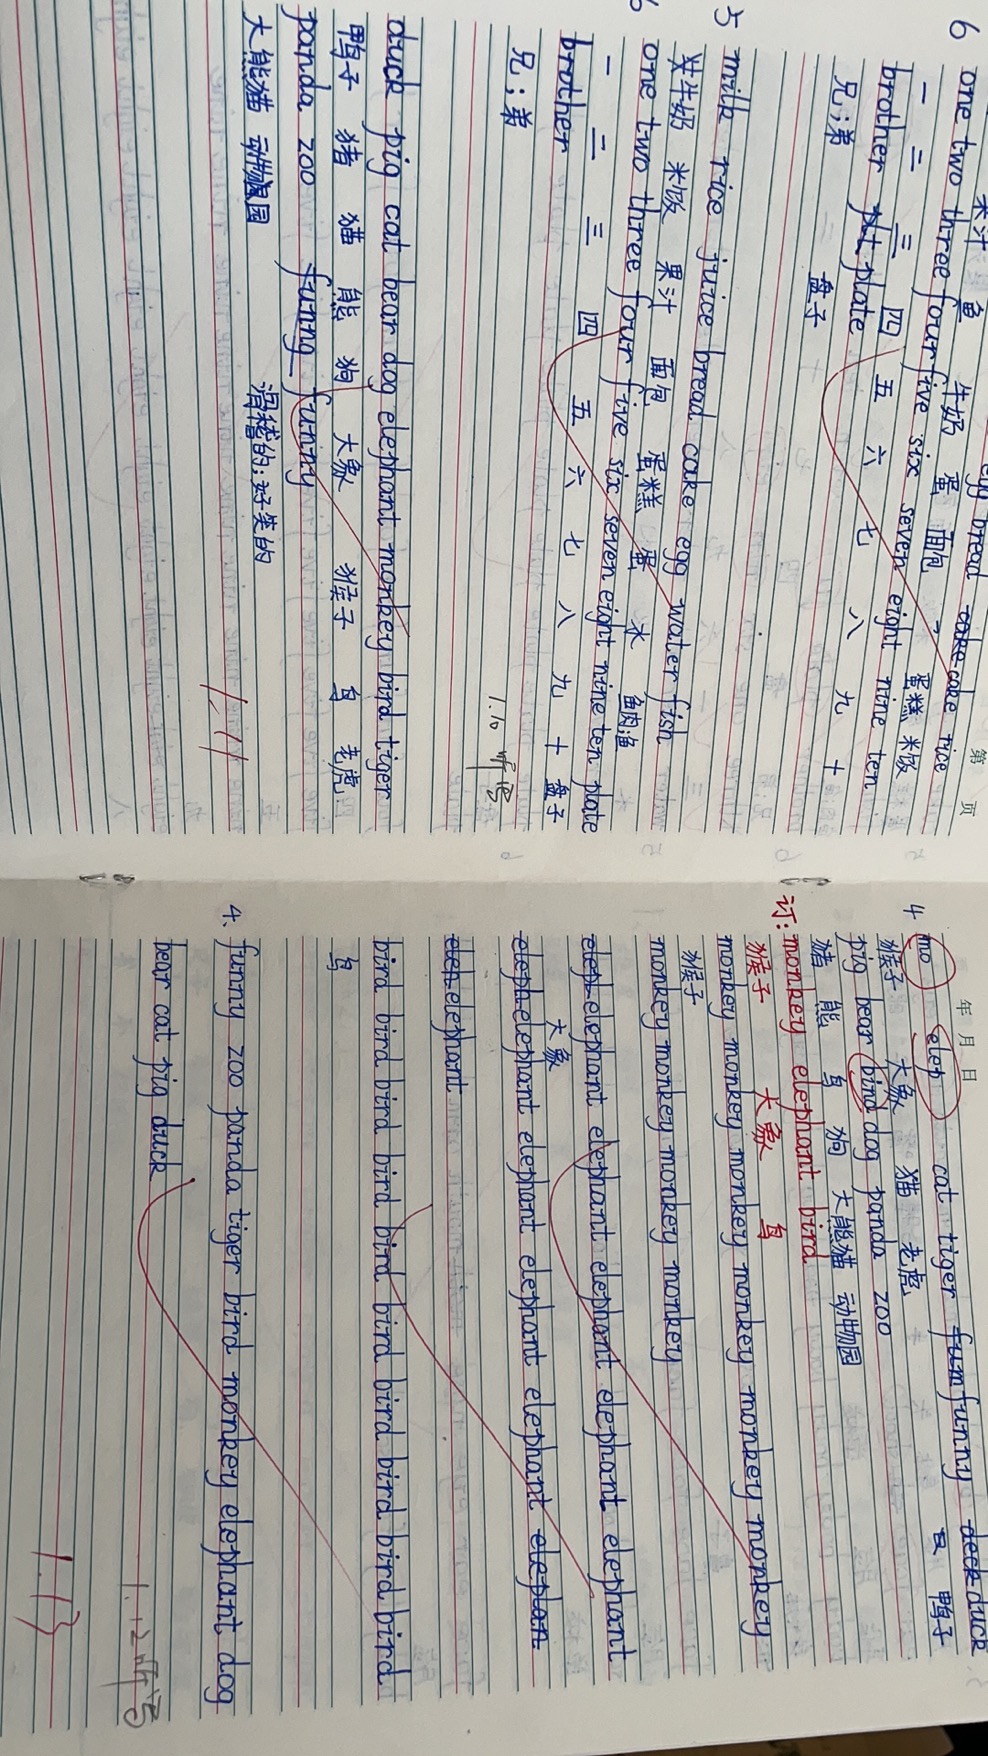 果汁 鱼 牛奶 蛋 面包 蛋糕 米饭
egg bread cake cake rice
第 页
6 one two three four five six seven eight nine ten
一 二 三 四 五 六 七 八 九 十
brother plt plate
兄;弟 盘子
5 milk rice juice bread cake egg water fish
牛奶 米饭 果汁 面包 蛋糕 蛋 水 鱼肉;鱼
6 one two three four five six seven eight nine ten plate
一 二 三 四 五 六 七 八 九 十 盘子
brother
兄;弟
1.10
duck pig cat bear dog elephant monkey bird tiger
鸭子 猪 猫 熊 狗 大象 猴子 鸟 老虎
panda zoo funng funny
大熊猫 动物园 滑稽的;好笑的
1.11
年 月 日
4 mo elep cat tiger fum funny deck duck
猴子 大象 猫 老虎 鸭子
pig bear bind dog panda zoo
猪 熊 鸟 狗 大熊猫 动物园
订: monkey elephant bird
猴子 大象 鸟
monkey monkey monkey monkey monkey monkey monkey
猴子
monkey monkey monkey monkey monkey
eleph elephant elephant elephant elephant elephant
大象
eleph elephant elephant elephant elephant elephan
eleph elephant
bird bird bird bird bird bird bird bird bird bird
鸟
4. funny zoo panda tiger bird monkey elephant dog
bear cat pig duck
1.12
1.13